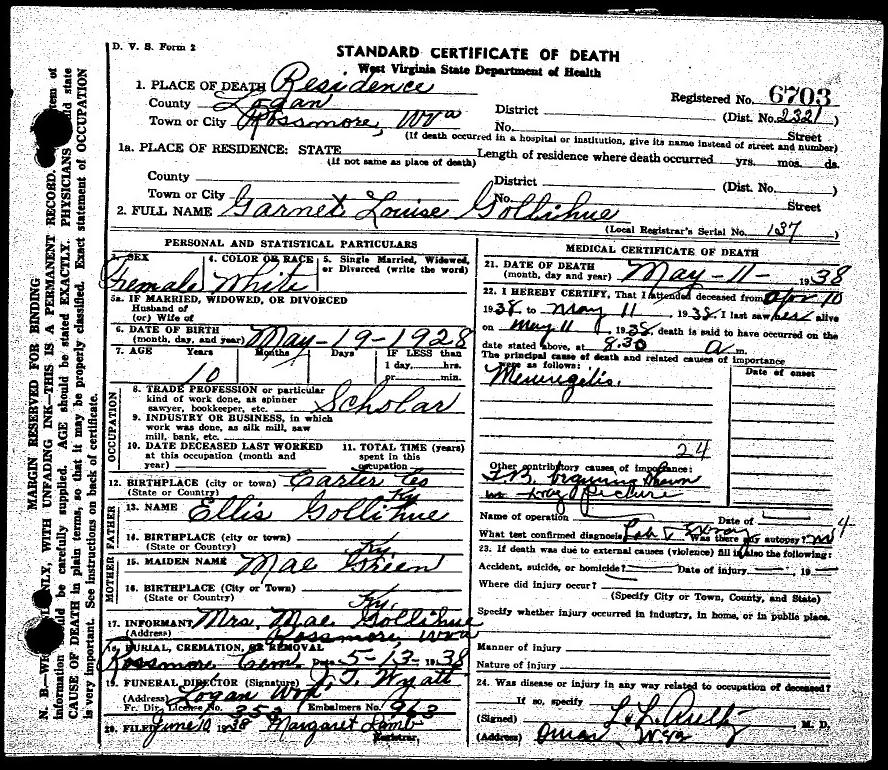 D. V. S. Form 2
STANDARD CERTIFICATE OF DEATH
West Virginia State Department of Health
1. PLACE OF DEATH Residence
Registered No. 6703
County Logan District (Dist. No. 2321)
Town or City Rossmore, W Va No. Street
(If death occurred in a hospital or institution, give its name instead of street and number)
1a. PLACE OF RESIDENCE: STATE Length of residence where death occurred yrs. mos. ds.
(If not same as place of death)
County District (Dist. No. )
Town or City No. Street
2. FULL NAME Garnet Louise Gollihue
(Local Registrar's Serial No. 137)
PERSONAL AND STATISTICAL PARTICULARS
3. SEX Female 4. COLOR OR RACE White 5. Single Married, Widowed, or Divorced (write the word)
5a. IF MARRIED, WIDOWED, OR DIVORCED
Husband of
(or) Wife of
6. DATE OF BIRTH
(month, day, and year) May-19-1928
7. AGE Years Months Days IF LESS than
1 day, hrs.
10 or min.
OCCUPATION
8. TRADE PROFESSION or particular
kind of work done, as spinner
sawyer, bookkeeper, etc. Scholar
9. INDUSTRY OR BUSINESS, in which
work was done, as silk mill, saw
mill, bank, etc.
10. DATE DECEASED LAST WORKED
at this occupation (month and
year)
11. TOTAL TIME (years)
spent in this
occupation
12. BIRTHPLACE (city or town) Carter Co
(State or Country) Ky
FATHER
13. NAME Ellis Gollihue
14. BIRTHPLACE (city or town)
(State or Country) Ky.
MOTHER
15. MAIDEN NAME Mae Green
16. BIRTHPLACE (City or Town)
(State or Country) Ky.
17. INFORMANT Mrs. Mae Gollihue
(Address) Rossmore, W Va
18. BURIAL, CREMATION, OR REMOVAL
Rossmore Cem. Date 5-13-1938
19. FUNERAL DIRECTOR (Signature) J. T. Wyatt
(Address) Logan W Va.
Fr. Dir. License No. 353 Embalmers No. 963
20. FILED June 10 1938 Margaret Lamb
Registrar.
MEDICAL CERTIFICATE OF DEATH
21. DATE OF DEATH
(month, day and year) May-11- 1938
22. I HEREBY CERTIFY, That I attended deceased from Apr 10
1938 to May 11, 1938. I last saw her alive
on May 11, 1938. death is said to have occurred on
date stated above, at 8.30 a m.
The principal cause of death and related causes of importance
were as follows: Date of onset
Meningitis.
24
Other contributory causes of importance:
T.B.
X-ray picture
Name of operation Date of
What test confirmed diagnosis Lab & X-ray Was there any autopsy? no
4
23. If death was due to external causes (violence) fill in also the following:
Accident, suicide, or homicide? Date of injury , 19
Where did injury occur?
(Specify City or Town, County, and State)
Specify whether injury occurred in industry, in home, or in public place.
Manner of injury
Nature of injury
24. Was disease or injury in any way related to occupation of deceased?
If so, specify
(Signed) M. D.
(Address) Omar W Va
MARGIN RESERVED FOR BINDING
UNFADING INK—THIS IS A PERMANENT RECORD.
be carefully supplied. AGE should be stated EXACTLY. PHYSICIANS state
CAUSE OF DEATH in plain terms, so that it may be properly classified. Exact statement of OCCUPATION
is very important. See instructions on back of certificate.